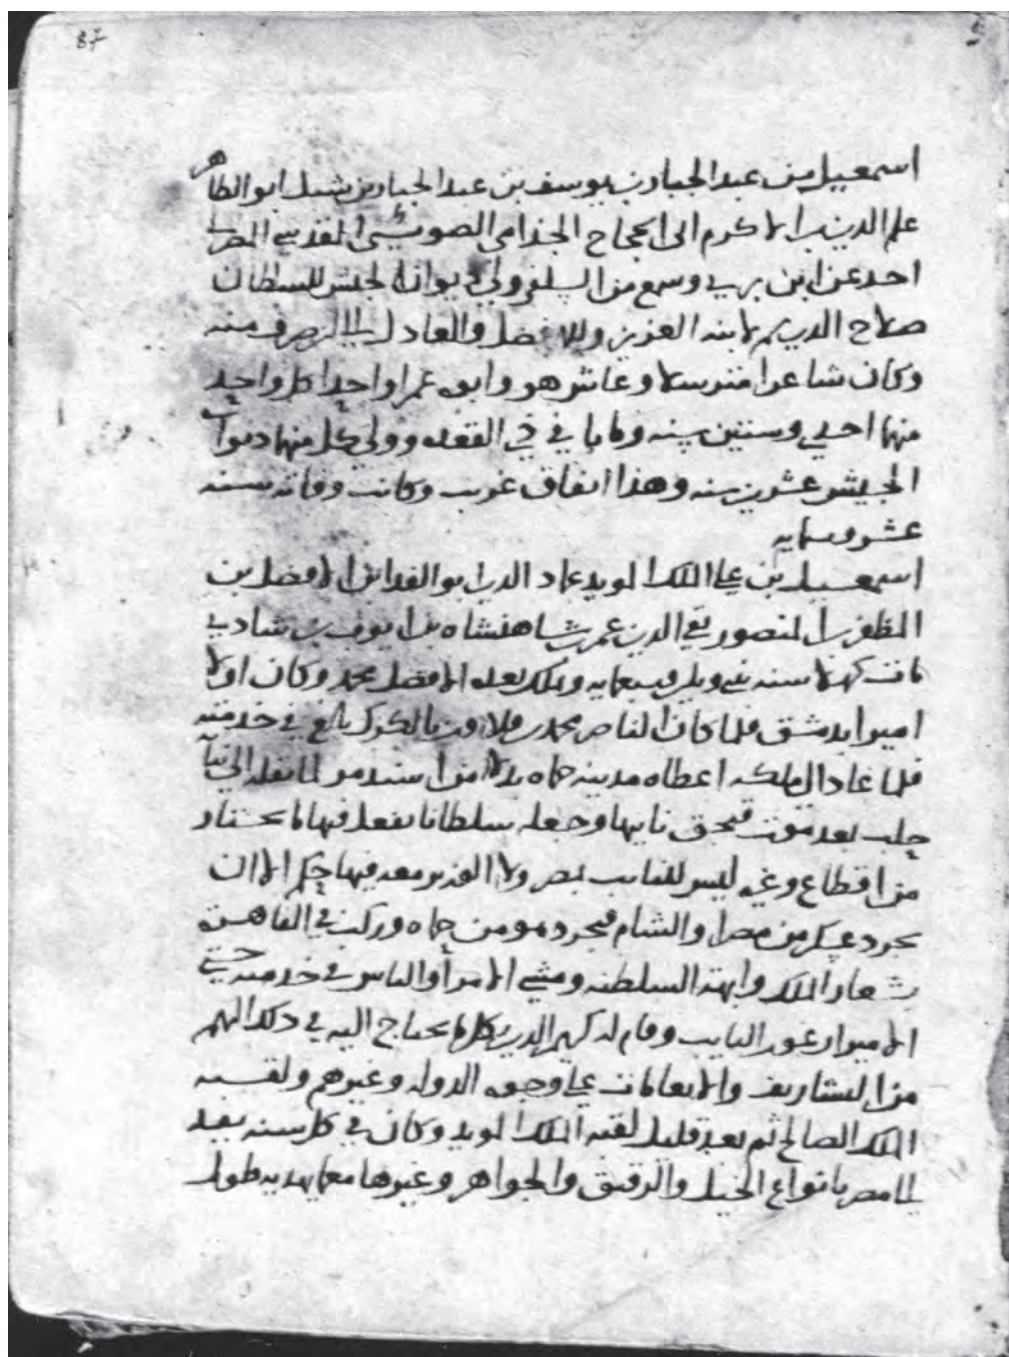 87
اسمعيل بن عبد الجبار بن يوسف بن عبد الجبار بن شبل ابو الطاهر
علم الدين بن الاكرم ابى الحجاج الجذامى الصويتى المقدسى المصرى
احد عن ابن برى وسمع من السلفى وولى ديوان الجيش للسلطان
صلاح الدين ثم لابنه العزيز وللافضل والعادل الى ان صرف منه
وكان شاعرا مترسلا وعاش هو وابوه عمرا واحدا كل واحد
منهما احدى وستين سنه وماتا فى ذى القعده وولى كل منهما ديوان
الجيش عشرين سنه وهذا اتفاق غريب وكانت وفاته سنه
عشر وستمايه
اسمعيل بن على الملك المويد عماد الدين ابو الفدا بن الافضل بن
المظفر بن المنصور تقى الدين عمر بن شاهنشاه بن ايوب بن شادى
مات كهلا سنه وملك بعده الافضل محمد وكان اولا
اميرا بدمشق فلما كان الناصر محمد بن قلاوون بالكرك بالغ فى خدمته
فلما عاد الى ملكه اعطاه مدينه حماه بدلا من اسندمر لما نقله الى نيابه
حلب بعد موت قبجق نايبها وجعله سلطانا يفعل فيها ما يختار
من اقطاع وغيره ليس للنايب بمصر ولا الوزير معه فيها حكم الا ان
يجرد عسكر من مصر او الشام فيجرد هو من حماه وركب فى القاهره
بشعار الملك وابهة السلطنه ومشى الامرا والناس فى خدمته حتى
الامير ارغون النايب وقام له كريم الدين بكل ما يحتاج اليه فى ذلك المهم
من التشاريف والانعامات على وجوه الدوله وغيرهم ولقبه
الملك الصالح ثم بعد قليل لقبه الملك المويد وكان فى كل سنه يفد
الى مصر بانواع الخيل والرقيق والجواهر وغيرها مما يهديه طول